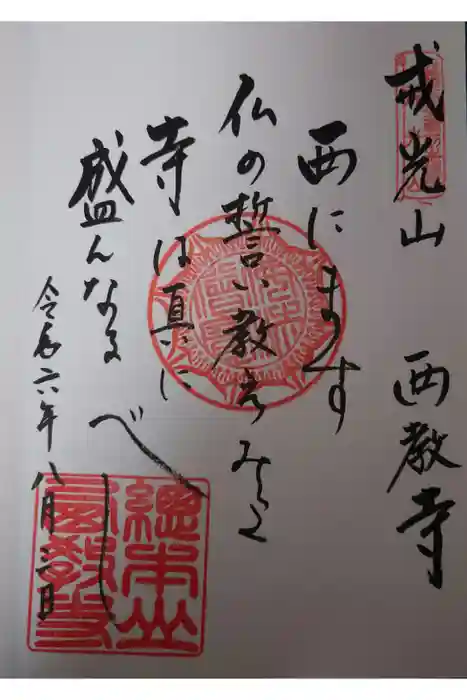 戒光山　西教寺
西にます
仏の誓い教え
寺は真に
盛んなるべし
令和六年八月三日
總本山
西教寺